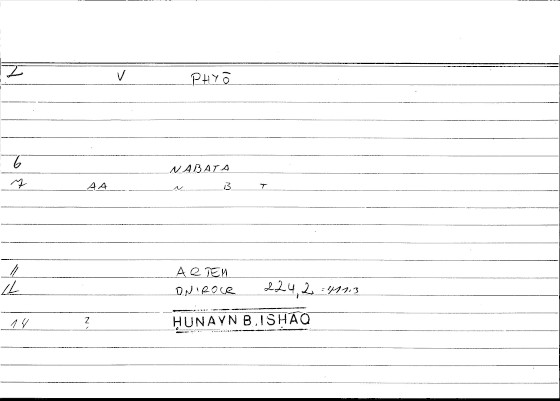 L V PHYŌ
6 NABATA
7 AA N B T
11 ARTEM
12 ONIROCR 224,2 = 411.3
14 ? HUNAYN B. ISHAQ